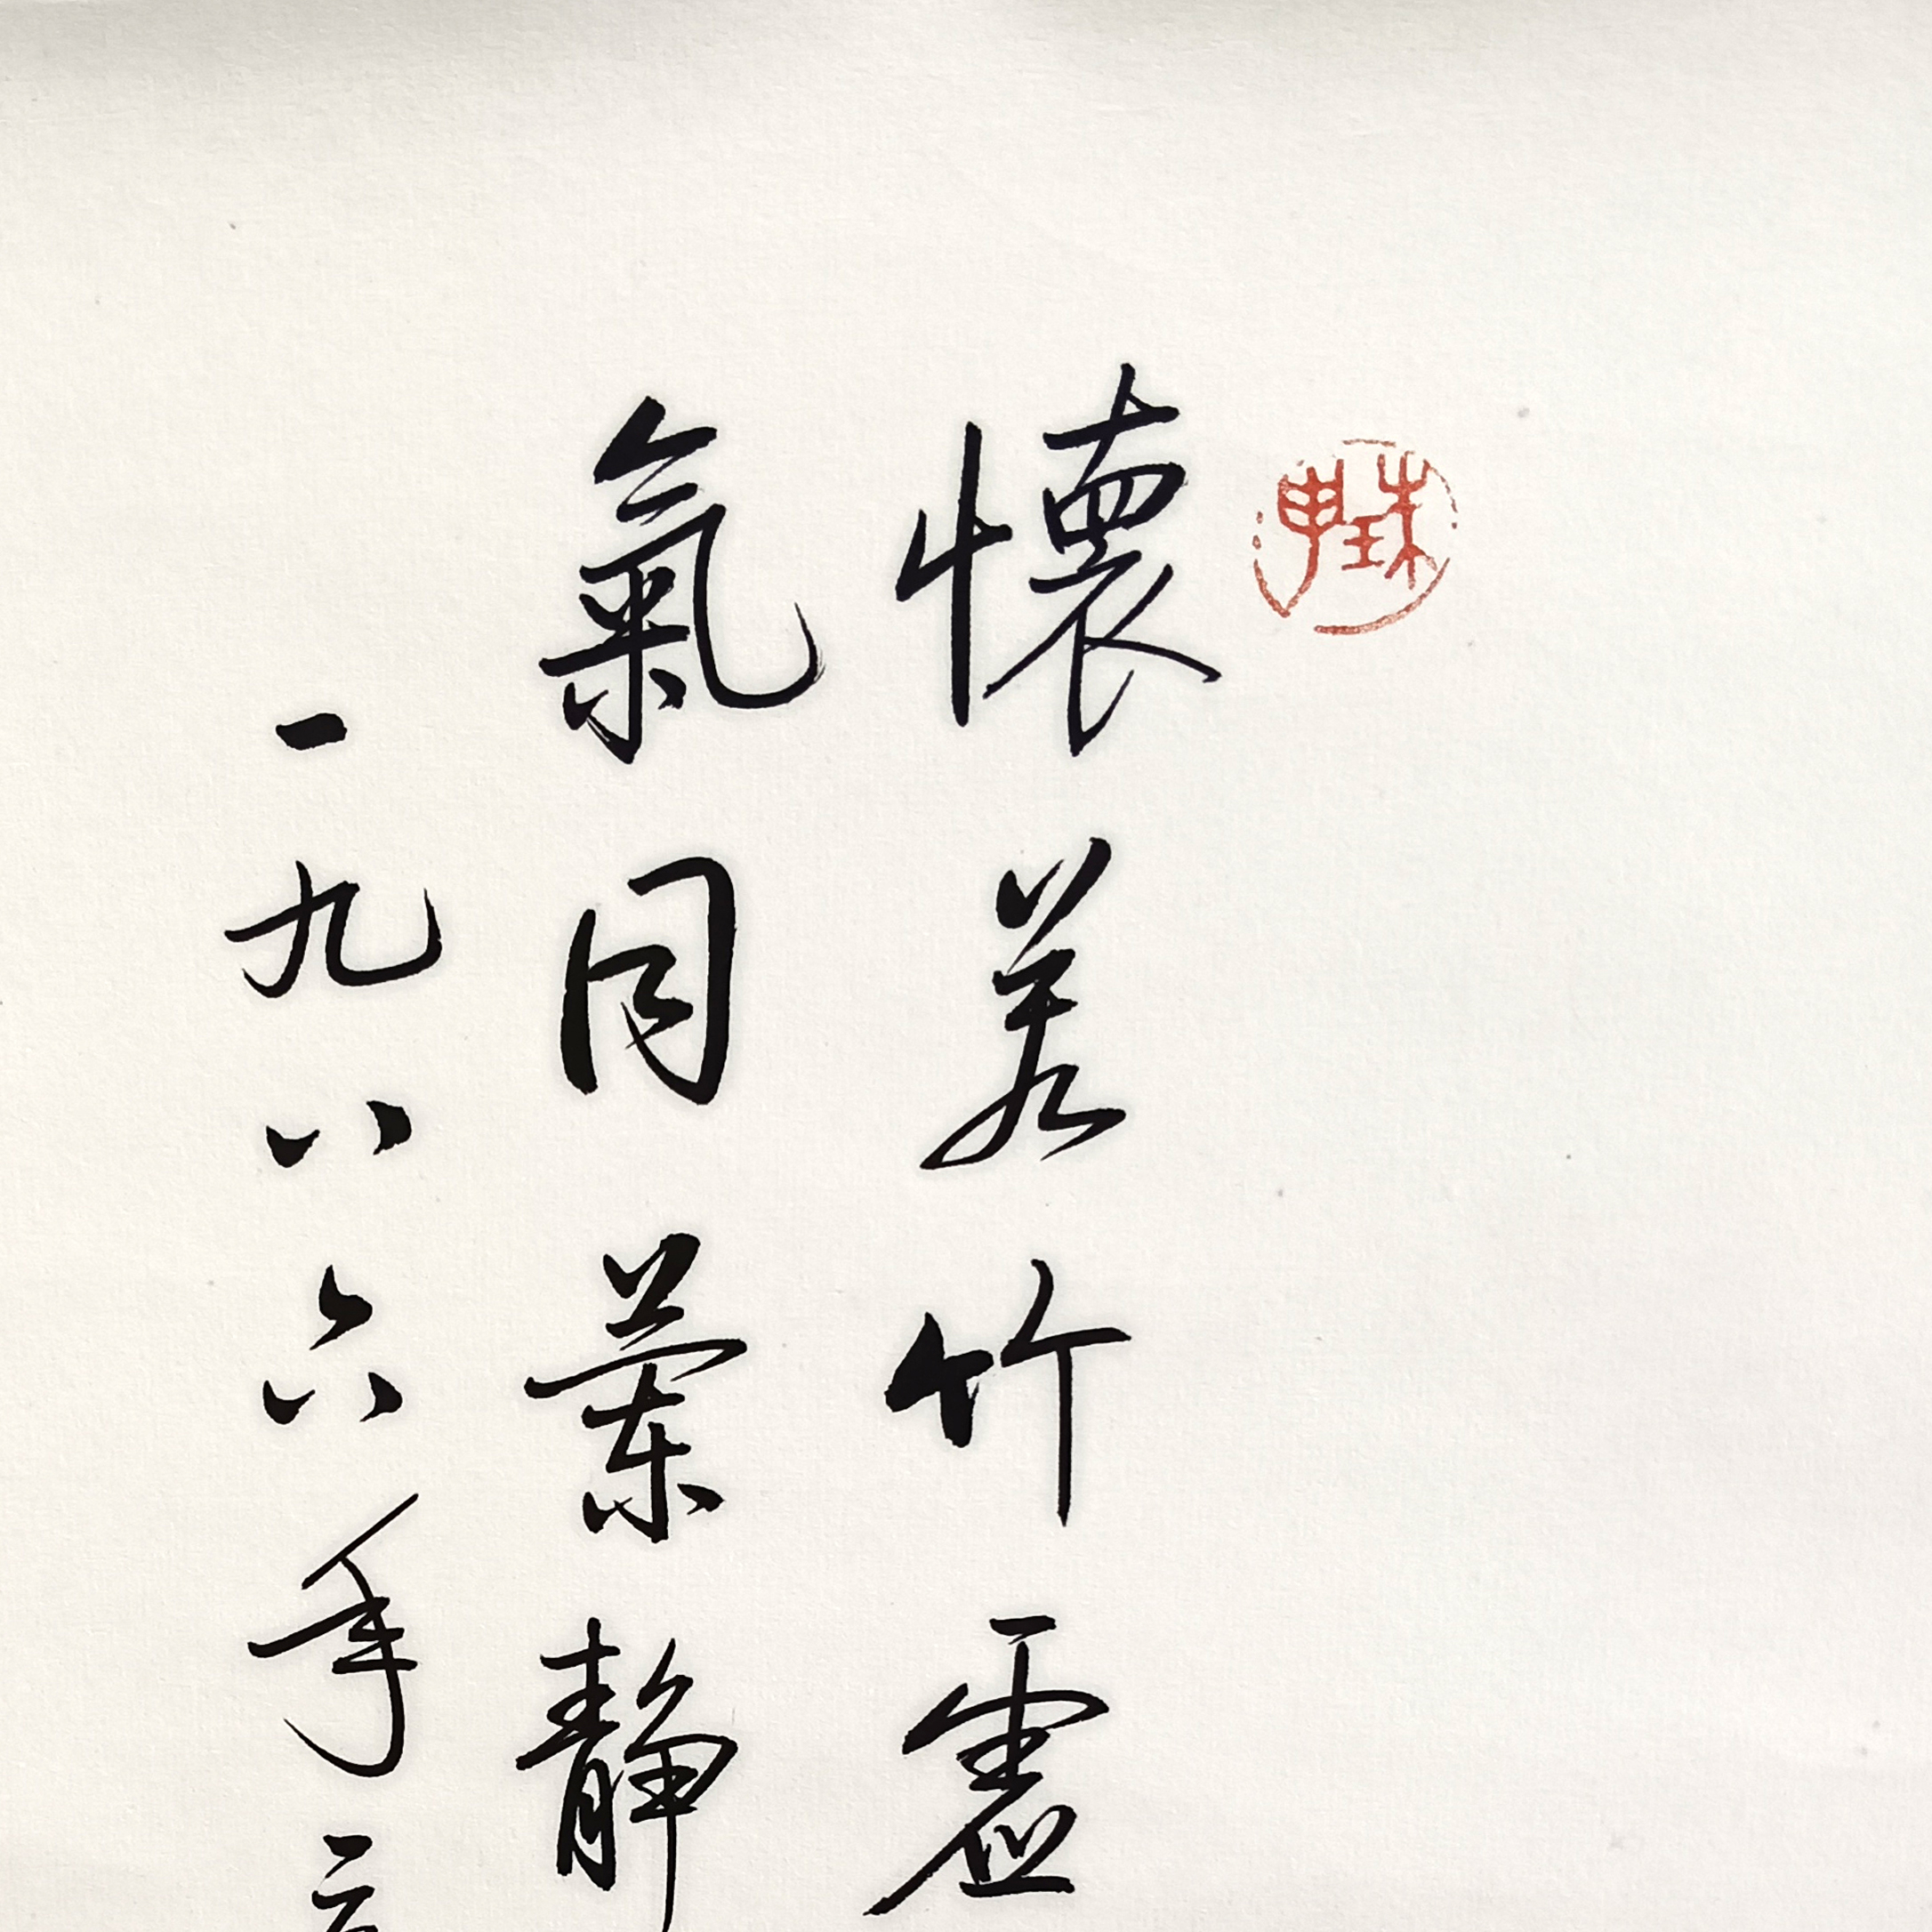 懷若竹虛
氣同蘭靜
一九八六年